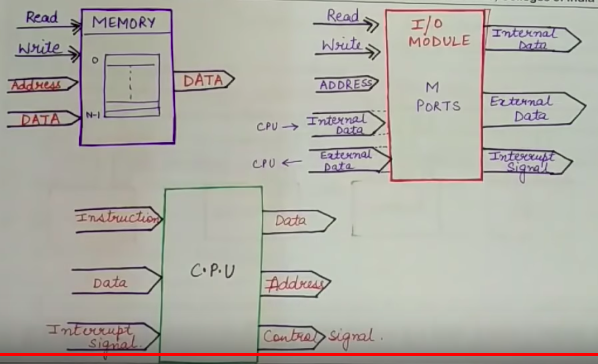 Read
Write
Address
DATA
MEMORY
0
N-1
DATA
Read
Write
ADDRESS
CPU →
Internal
Data
CPU ←
External
Data
I/O
MODULE
M
PORTS
Internal
Data
External
Data
Interrupt
Signal
Instruction
Data
Interrupt
Signal.
C.P.U
Data
Address
Control Signal.